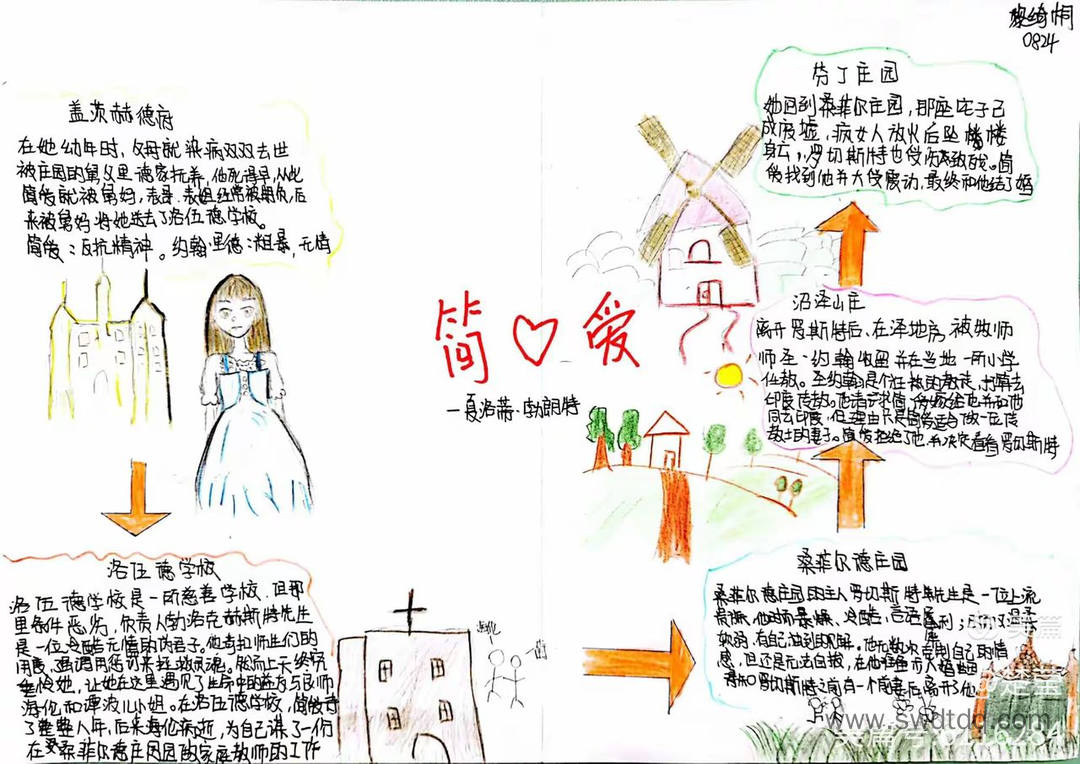 0824
盖茨赫德府
在她幼年时，父母就染病双双去世
被庄园的舅父里德家抚养，他死得早，从此
简爱就被舅妈、表哥、表姐经常被欺负，后
来被舅妈将她送去了洛伍德学校。
简爱：反抗精神。约翰·里德：粗暴，无情
洛伍德学校
洛伍德学校是一所慈善学校，但那
里条件恶劣，负责人勃洛克赫斯特先生
是一位冷酷无情的伪君子。他苛扣师生们的
用度，强调用惩罚来拯救灵魂。然而上天终究
垂怜她，让她在这里遇见了生命中的益友与良师
海伦和谭波儿小姐。在洛伍德学校，简爱待
了整整八年，后来海伦病逝，为自己谋了一份
在桑菲尔德庄园的家庭教师的工作
简♡爱
—夏洛蒂·勃朗特
芬丁庄园
她回到桑菲尔庄园，那座宅子已
成废墟，疯女人放火后坠楼
身亡，罗切斯特也受伤致残。简
爱找到他并大受震动，最终和他结了婚
沼泽山庄
离开罗斯特后、在泽地房，被牧师
师圣·约翰收留并在当地一所小学
任教。圣约翰是个狂热的教徒，打算去
印度传教。他请求简爱嫁给他并和他
同去印度，但理由只是简爱适合做一位传
教士的妻子。简爱拒绝了他，并决定看看罗切斯特
桑菲尔德庄园
桑菲尔德庄园的主人罗切斯特先生是一位上流
有自己独到的见解。他无数次克制自己的情
感，但还是无法自拔，在他
www.swdtdq.com